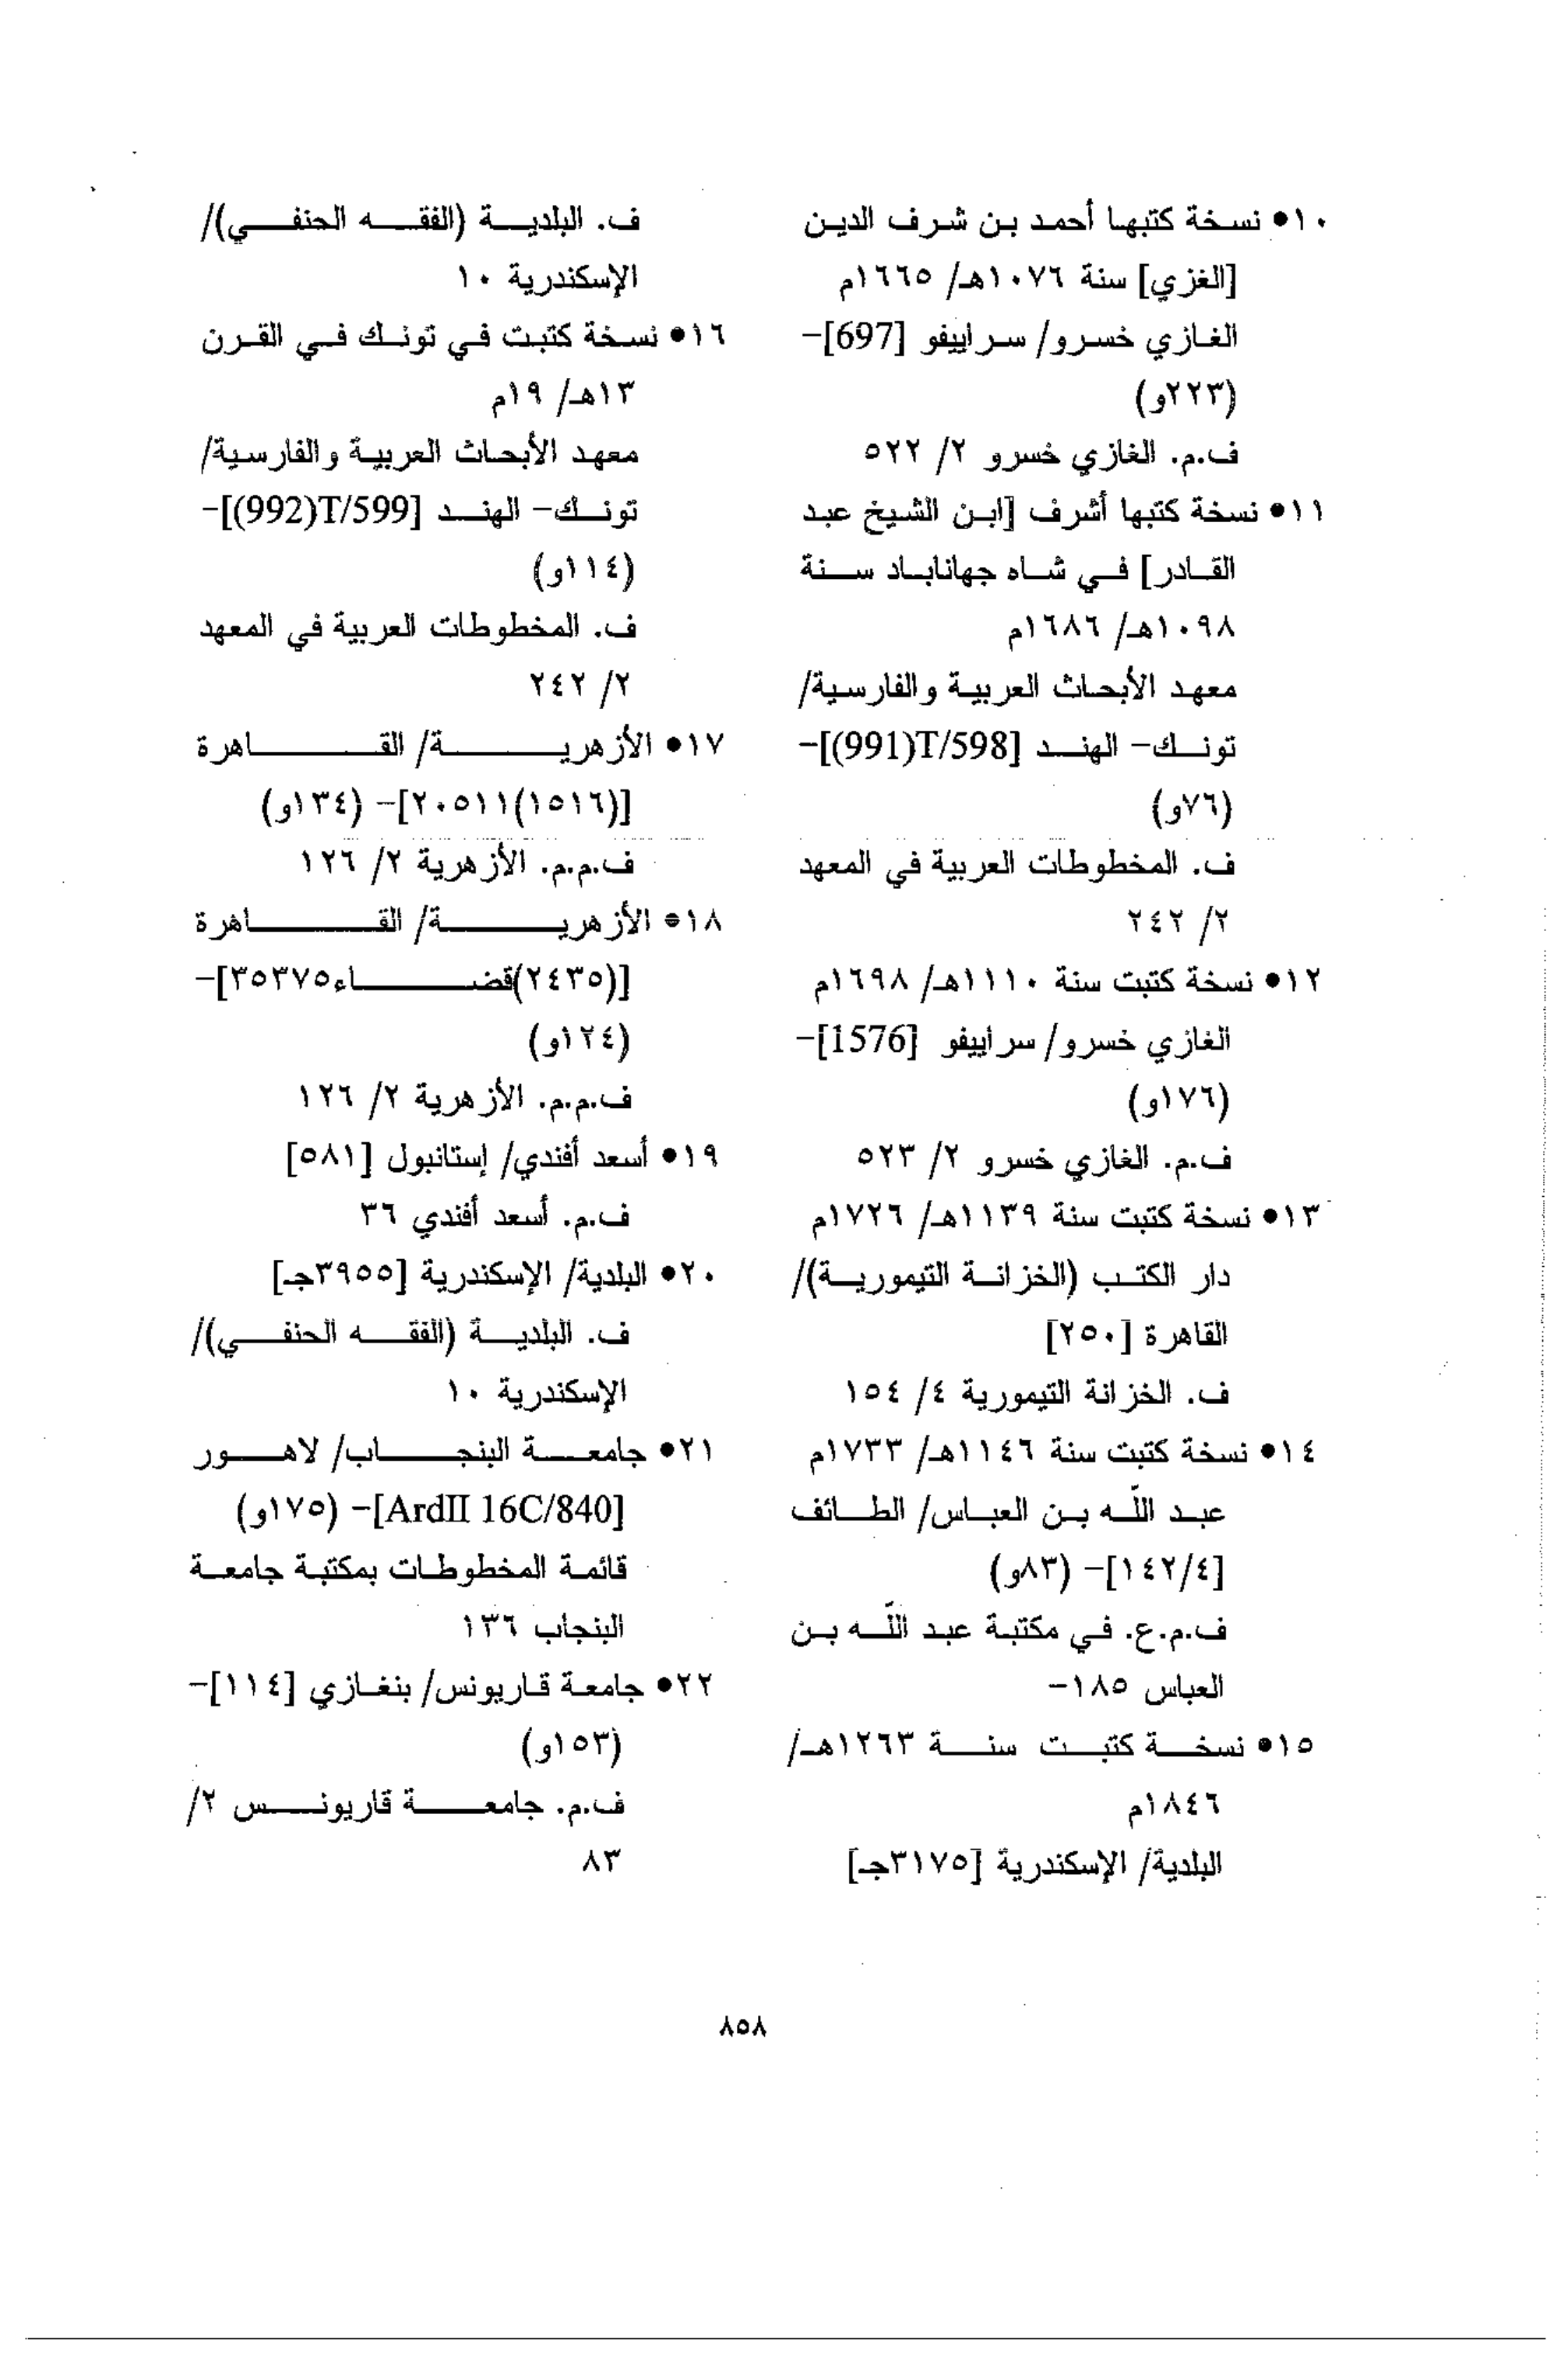 ١٠• نسخة كتبها أحمد بن شرف الدين
[الغزي] سنة ١٠٧٦هـ/ ١٦٦٥م
الغازي خسرو/ سراييفو [697]-
(٢٢٣و)
ف.م. الغازي خسرو ٢/ ٥٢٢
١١• نسخة كتبها أشرف [ابن الشيخ عبد
القادر] في شاه جهاناباد سنة
١٠٩٨هـ/ ١٦٨٦م
معهد الأبحاث العربية والفارسية/
تونك- الهند [991)T/598)]-
(٧٦و)
ف. المخطوطات العربية في المعهد
٢/ ٢٤٢
١٢• نسخة كتبت سنة ١١١٠هـ/ ١٦٩٨م
الغازي خسرو/ سراييفو [1576]-
(١٧٦و)
ف.م. الغازي خسرو ٢/ ٥٢٣
١٣• نسخة كتبت سنة ١١٣٩هـ/ ١٧٢٦م
دار الكتب (الخزانة التيمورية)/
القاهرة [٢٥٠]
ف. الخزانة التيمورية ٤/ ١٥٤
١٤• نسخة كتبت سنة ١١٤٦هـ/ ١٧٣٣م
عبد اللّه بن العباس/ الطائف
[١٤٢/٤]- (٨٣و)
ف.م.ع. في مكتبة عبد اللّه بن
العباس ١٨٥-
١٥• نسخة كتبت سنة ١٢٦٣هـ/
١٨٤٦م
البلدية/ الإسكندرية [٣١٧٥جـ]
ف. البلدية (الفقه الحنفي)/
الإسكندرية ١٠
١٦• نسخة كتبت في تونك في القرن
١٣هـ/ ١٩م
معهد الأبحاث العربية والفارسية/
تونك- الهند [992)T/599)]-
(١١٤و)
ف. المخطوطات العربية في المعهد
٢/ ٢٤٢
١٧• الأزهرية/ القاهرة
[(١٥١٦)٢٠٥١١]- (١٣٤و)
ف.م.م. الأزهرية ٢/ ١٢٦
١٨• الأزهرية/ القاهرة
[(٢٤٣٥)قضاء٣٥٣٧٥]-
(١٢٤و)
ف.م.م. الأزهرية ٢/ ١٢٦
١٩• أسعد أفندي/ إستانبول [٥٨١]
ف.م. أسعد أفندي ٣٦
٢٠• البلدية/ الإسكندرية [٣٩٥٥جـ]
ف. البلدية (الفقه الحنفي)/
الإسكندرية ١٠
٢١• جامعة البنجاب/ لاهور
[ArdII 16C/840]- (١٧٥و)
قائمة المخطوطات بمكتبة جامعة
البنجاب ١٣٦
٢٢• جامعة قاريونس/ بنغازي [١١٤]-
(١٥٣و)
ف.م. جامعة قاريونس ٢/
٨٣
٨٥٨